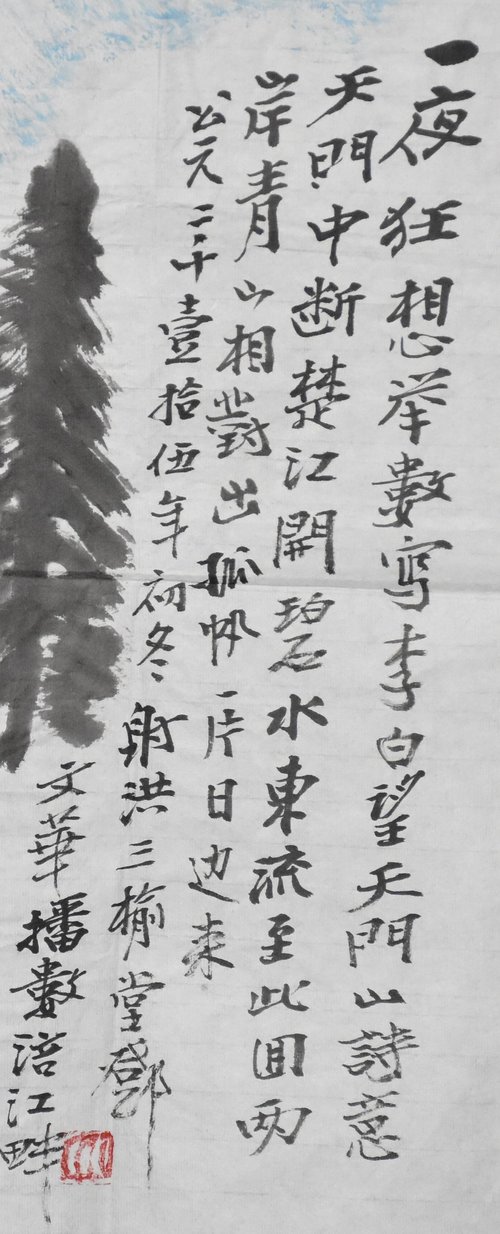 一夜狂想举數寫李白望天門山詩意
天門中断楚江開碧水東流至此囬两
岸青山相對出孤帆一片日边来
公元二千壹拾伍年初冬射洪三榆堂鄧
文華播數涪江畔